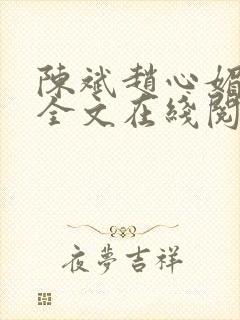 陳斌趙心媚
全文在綫閱
夜夢吉祥